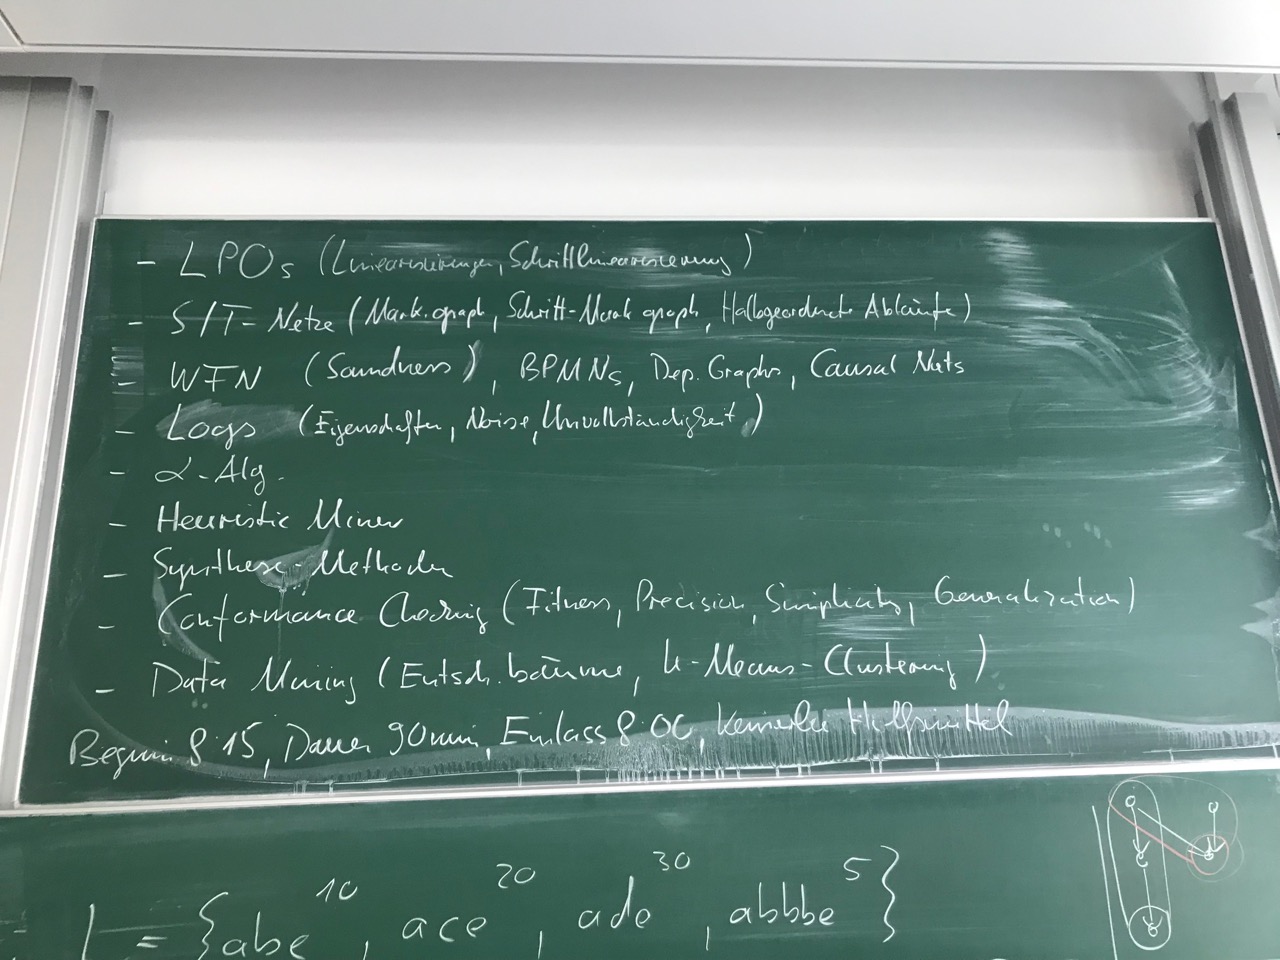 - LPOs (Linearisierungen, Schrittlinearisierung)
- S/T-Netze (Mark.graph, Schritt-Mark graph, Halbgeordnete Abläufe)
- WFN (Soundness), BPMNs, Dep. Graphs, Causal Nets
- Logs (Eigenschaften, Noise, Unvollständigkeit)
- α-Alg.
- Heuristic Miner
- Synthese-Methoden
- Conformance Checking (Fitness, Precision, Simplicity, Generalization)
- Data Mining (Entsch.bäume, k-Means-Clustering)
Beginn 8:15, Dauer 90min, Einlass 8:00, Keinerlei Hilfsmittel
L = {abe^10, ace^20, ade^30, abbbe^5}